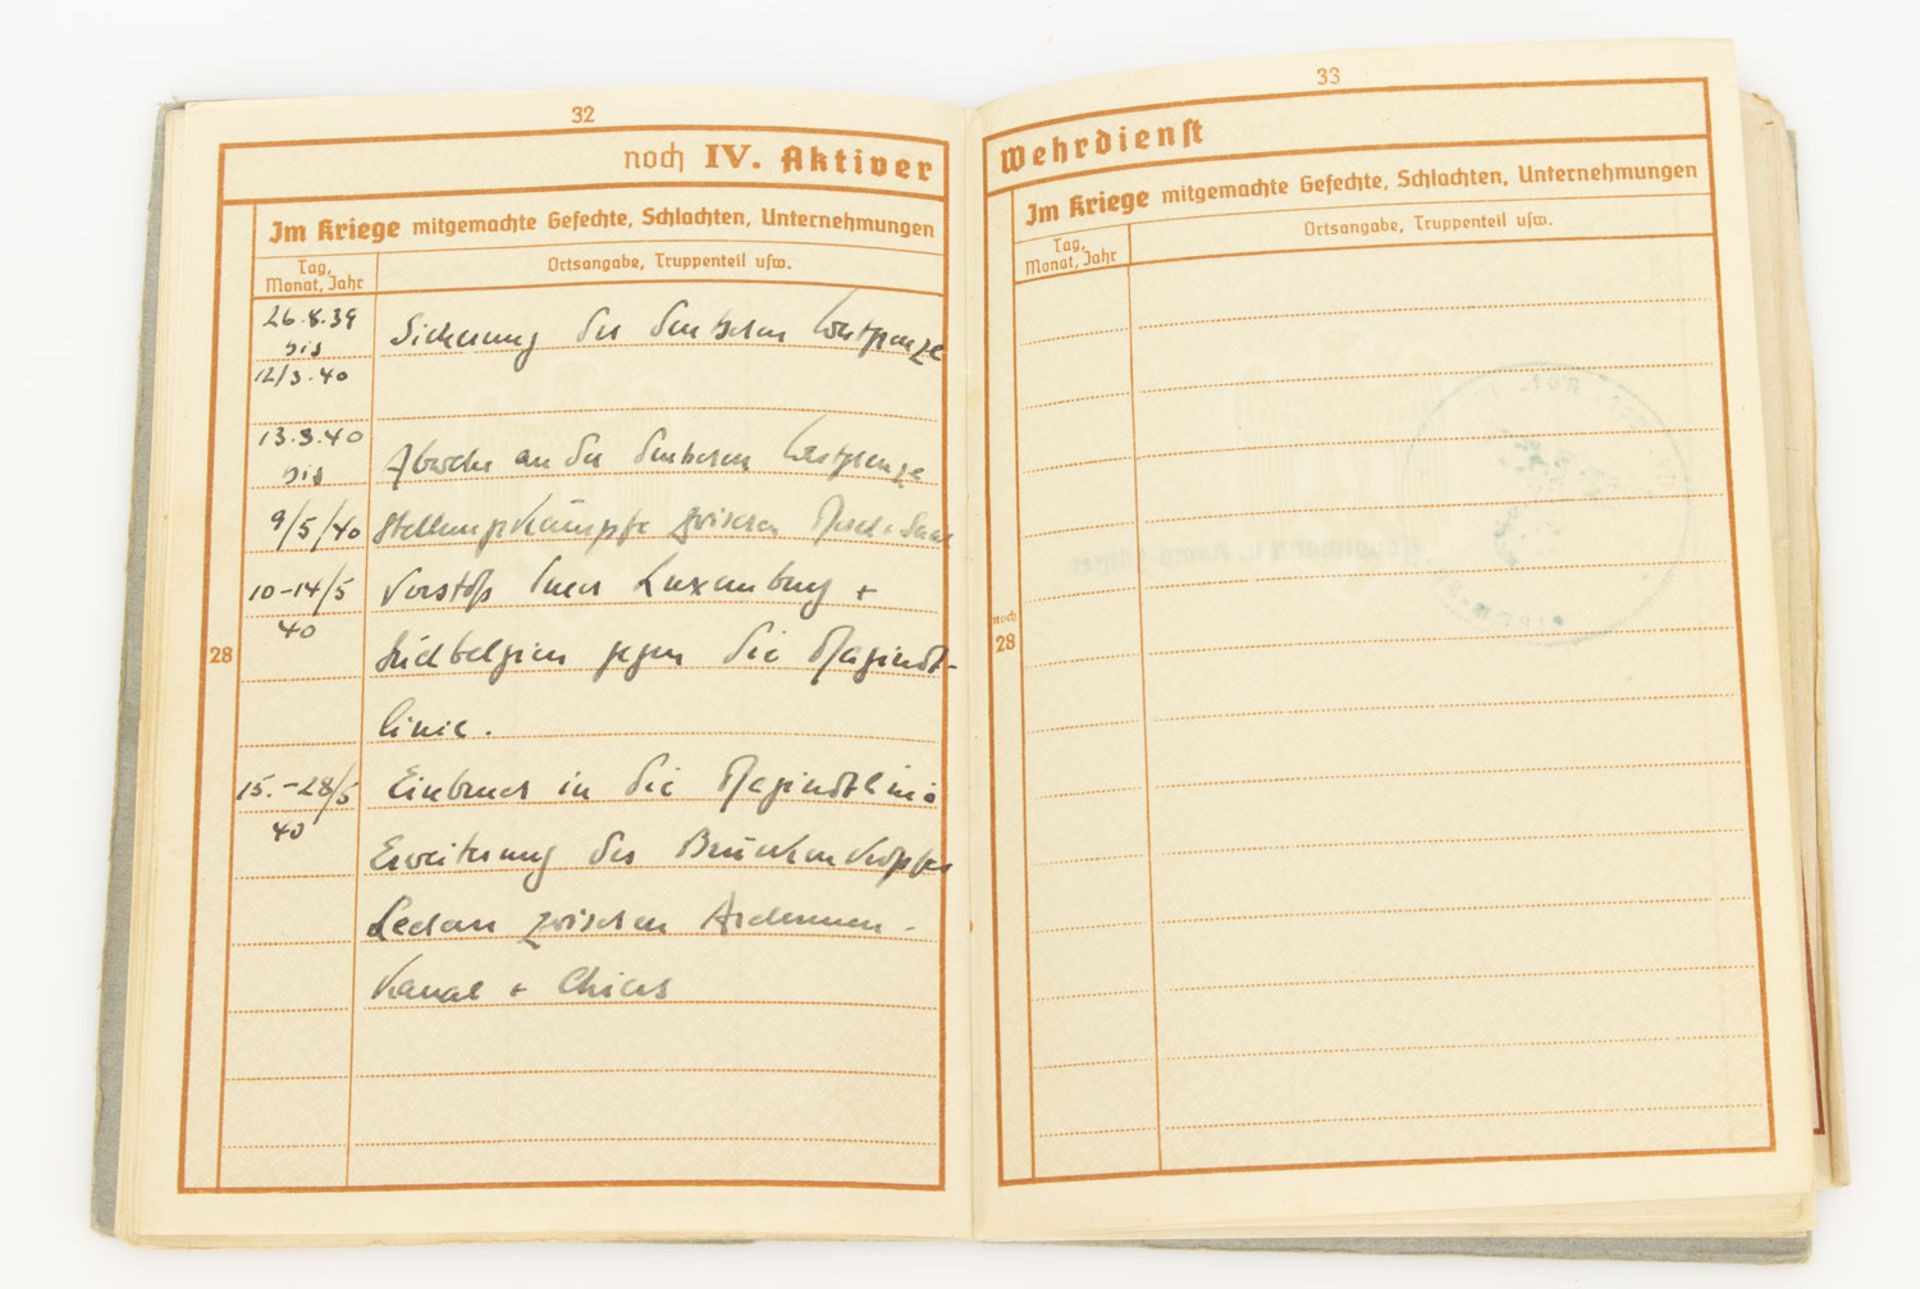 32
noch IV. Aktiver
Im Kriege mitgemachte Gefechte, Schlachten, Unternehmungen
Tag, Monat, Jahr
Ortsangabe, Truppenteil usw.
26.8.39 bis
Sicherung der deutschen Westgrenze
12/3.40
13.3.40 bis
Abwehr an der deutschen Westgrenze
9/5/40 Stellungskämpfe zwischen Mosel + Saar
10-14/5 Vorstoß durch Luxemburg +
40
28
Südbelgien gegen die Maginot-
linie.
15.-28/5 Einbruch in die Maginotlinie
40
Erweiterung des Brückenkopfes
Sedan zwischen Ardennen-
Kanal + Chiers
33
Wehrdienst
Im Kriege mitgemachte Gefechte, Schlachten, Unternehmungen
Tag, Monat, Jahr
Ortsangabe, Truppenteil usw.
noch
28